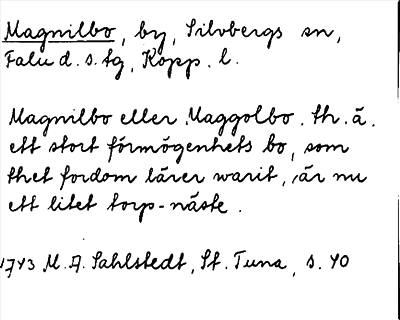 Magnilbo, by, Silvbergs sn,
Falu d. s. tg, Kopp. l.
Magnilbo eller Maggolbo. th. ä.
ett stort förmögenhets bo, som
thet fordom lärer warit, är nu
ett litet torp-näste.
1743 M. A. Sahlstedt, St. Tuna, s. 40